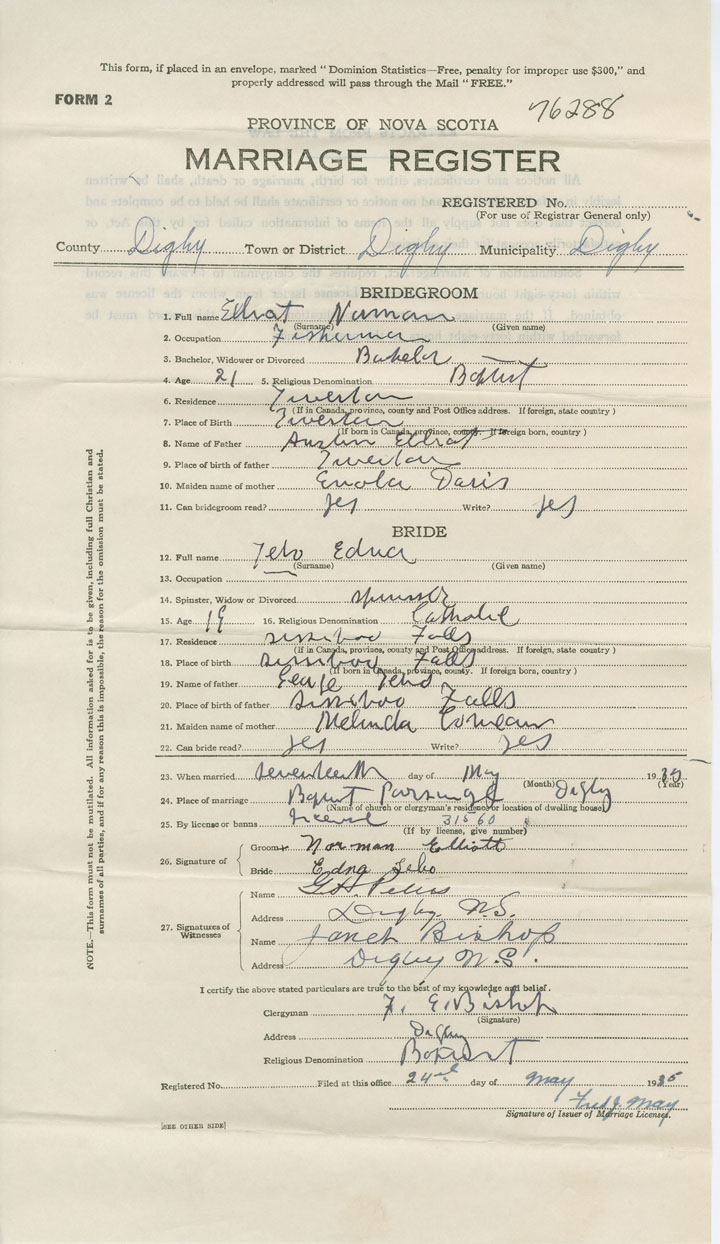 This form, if placed in an envelope, marked "Dominion Statistics—Free, penalty for improper use $300," and
properly addressed will pass through the Mail "FREE."
FORM 2
76288
PROVINCE OF NOVA SCOTIA
MARRIAGE REGISTER
REGISTERED No.
(For use of Registrar General only)
County Digby Town or District Digby Municipality Digby
BRIDEGROOM
1. Full name Elliott Norman
(Surname) (Given name)
2. Occupation Fisherman
3. Bachelor, Widower or Divorced Bachelor
4. Age 21 5. Religious Denomination Baptist
6. Residence Tiverton
(If in Canada, province, county and Post Office address. If foreign, state country)
7. Place of Birth Tiverton
(If born in Canada, province, county. If foreign born, country)
8. Name of Father Austin Elliott
9. Place of birth of father Tiverton
10. Maiden name of mother Enola Davis
11. Can bridegroom read? yes Write? yes
BRIDE
12. Full name Lebo Edna
(Surname) (Given name)
13. Occupation
14. Spinster, Widow or Divorced spinster
15. Age 19 16. Religious Denomination Catholic
17. Residence sissiboo Falls
(If in Canada, province, county and Post Office address. If foreign, state country)
18. Place of birth sissiboo Falls
(If born in Canada, province, county. If foreign born, country)
19. Name of father George Lebo
20. Place of birth of father sissiboo Falls
21. Maiden name of mother Melinda Comeau
22. Can bride read? yes Write? yes
23. When married seventeenth day of May 1935
(Month) (Year)
24. Place of marriage Baptist Parsonage Digby
(Name of church or clergyman's residence or location of dwelling house)
25. By license or banns License 31560
(If by license, give number)
26. Signature of
Groom Norman Elliott
Bride Edna Lebo
27. Signatures of Witnesses
Name G.H.
Address Digby. N.S.
Name Janet Bishop
Address Digby N.S.
I certify the above stated particulars are true to the best of my knowledge and belief.
Clergyman F. E. Bishop
(Signature)
Address Digby
Religious Denomination Baptist
Registered No. Filed at this office 24th day of May 1935
Fred J. May
Signature of Issuer of Marriage Licenses.
[SEE OTHER SIDE]
NOTE.—This form must not be mutilated. All information asked for is to be given, including full Christian and
surnames of all parties, and if for any reason this is impossible, the reason for the omission must be stated.